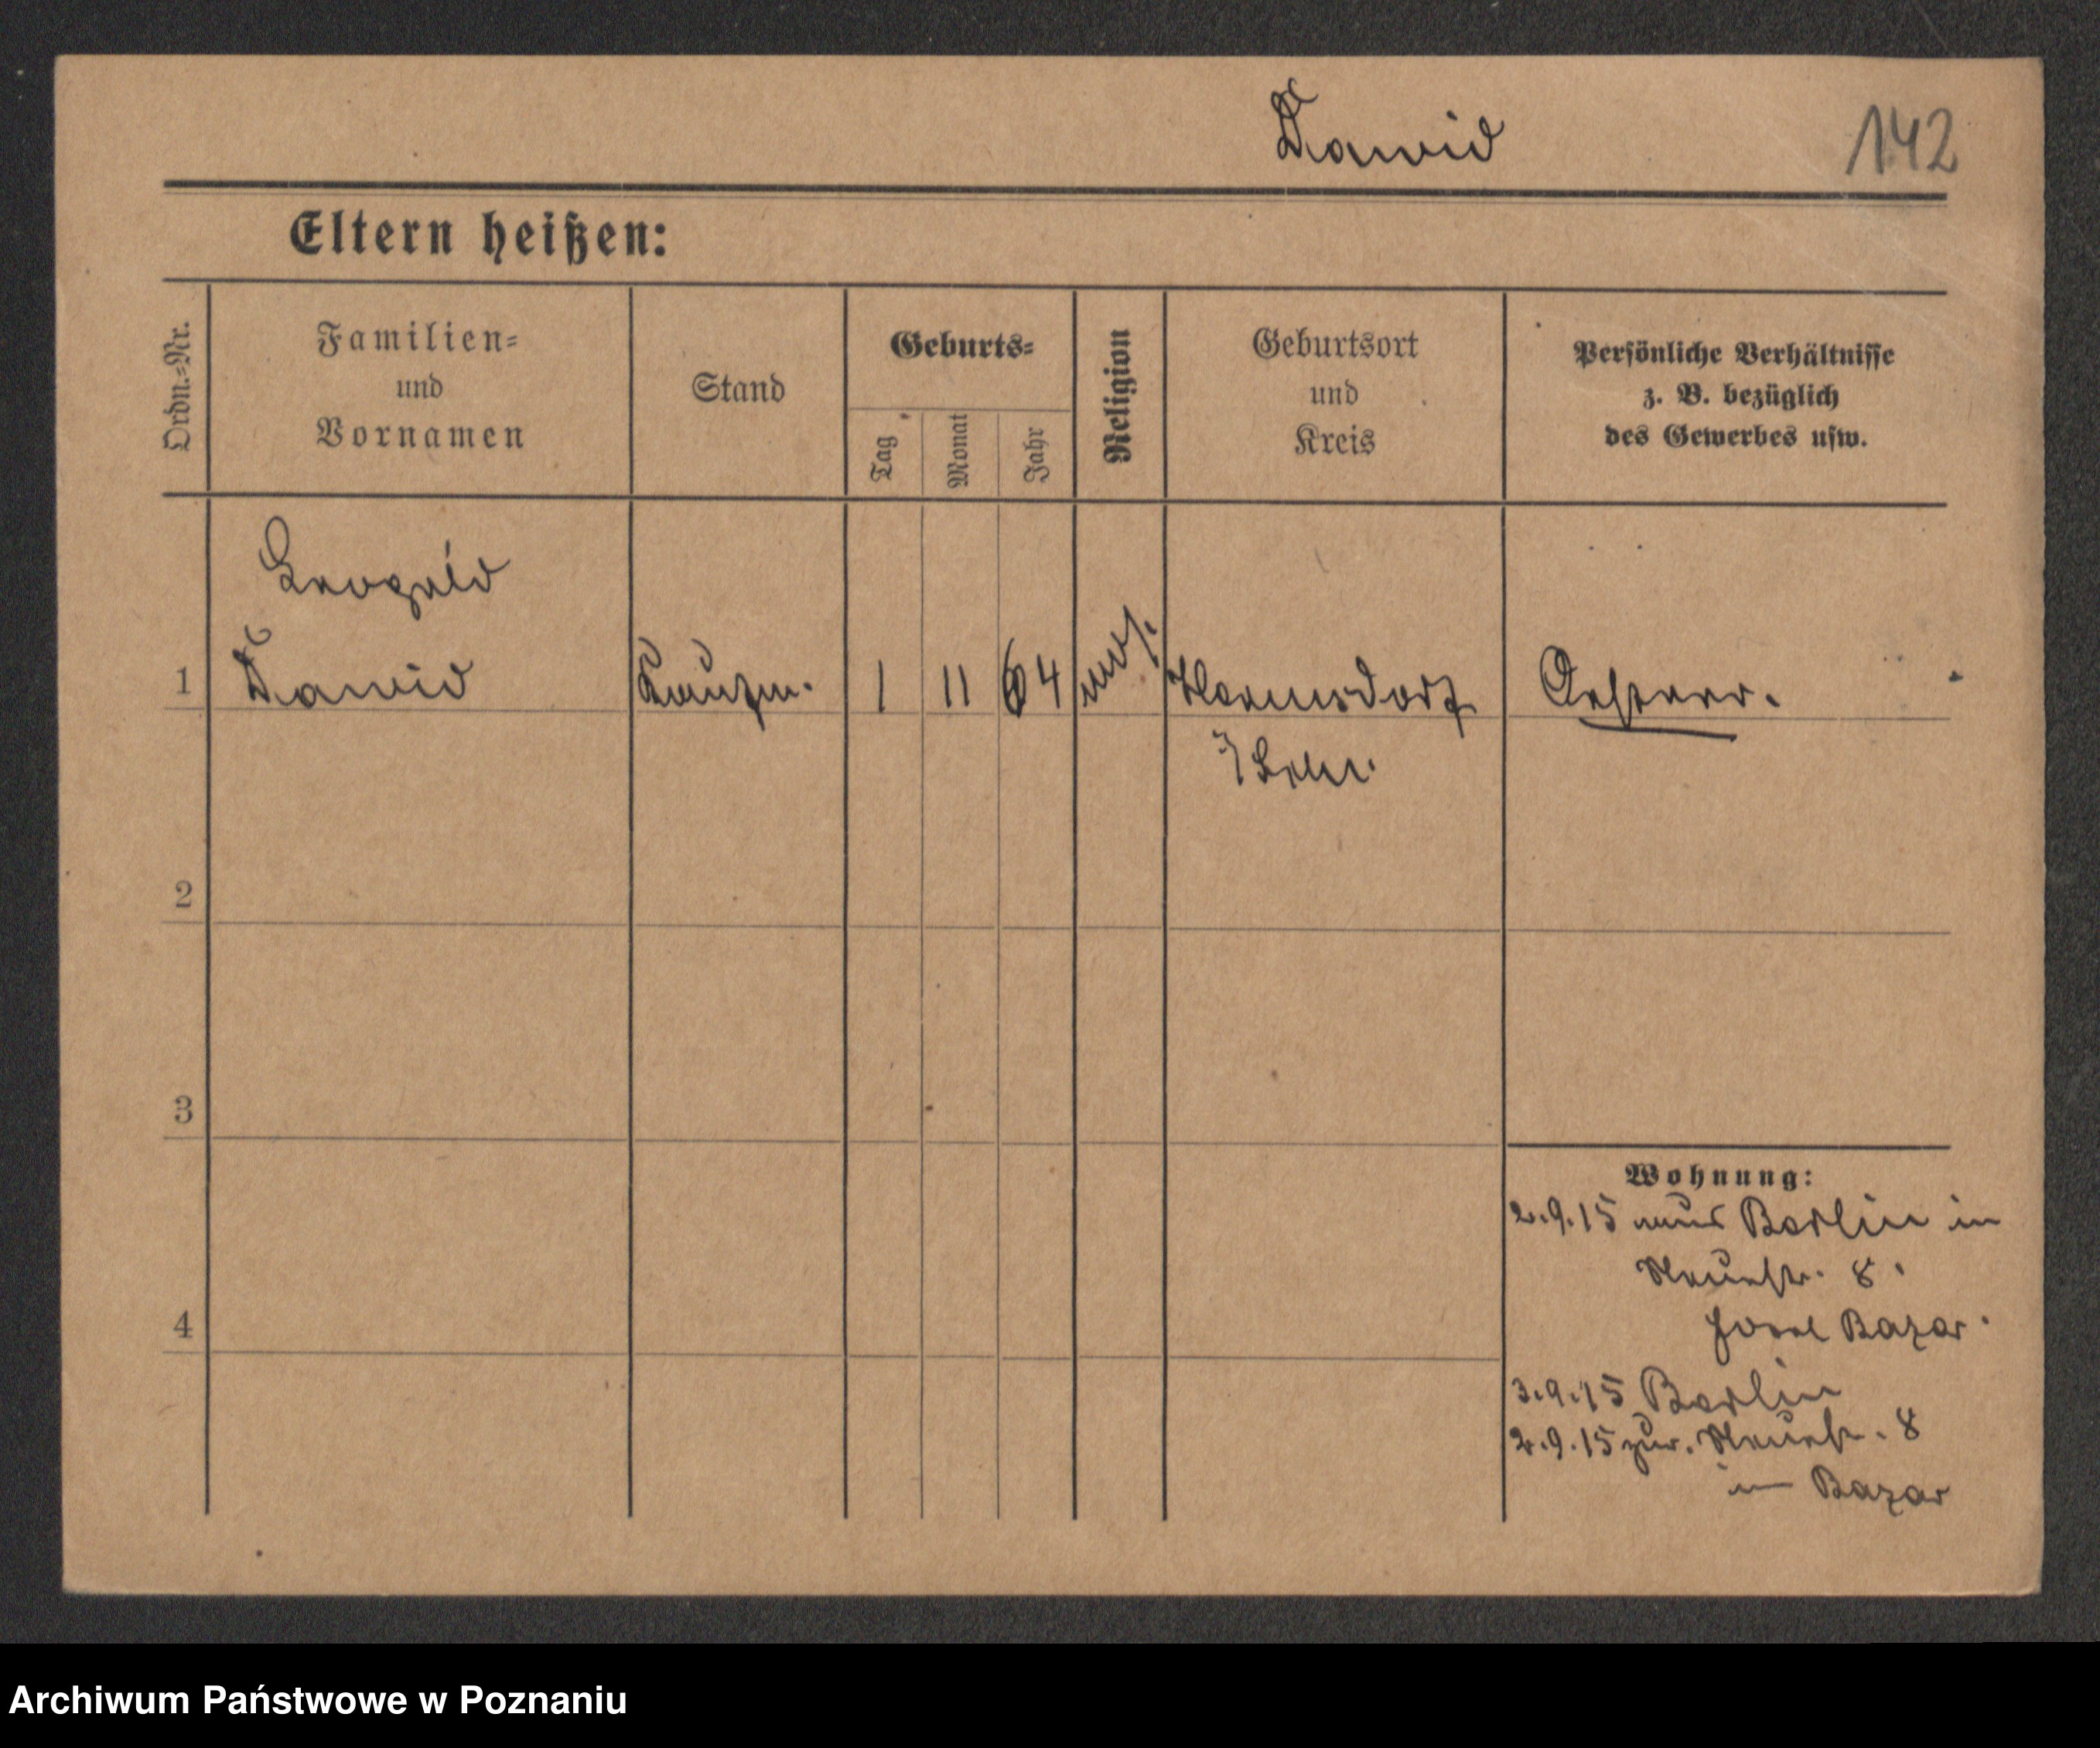 Dawid
142
Eltern heißen:
Ordn.=Nr.
Familien=
und
Vornamen
Stand
Geburts=
Tag
Monat
Jahr
Religion
Geburtsort
und
Kreis
Persönliche Verhältnisse
z. B. bezüglich
des Gewerbes usw.
Leopold
1 Dawid Kaufm. 1 11 64 mos. Hermsdorf Oesterr.
2
3
4
Wohnung:
2.9.15 aus Berlin in
Neuestr. 8.
Hotel Bazar.
3.9.15 Berlin
2.9.15 zur. Neuestr. 8
im Bazar
Archiwum Państwowe w Poznaniu